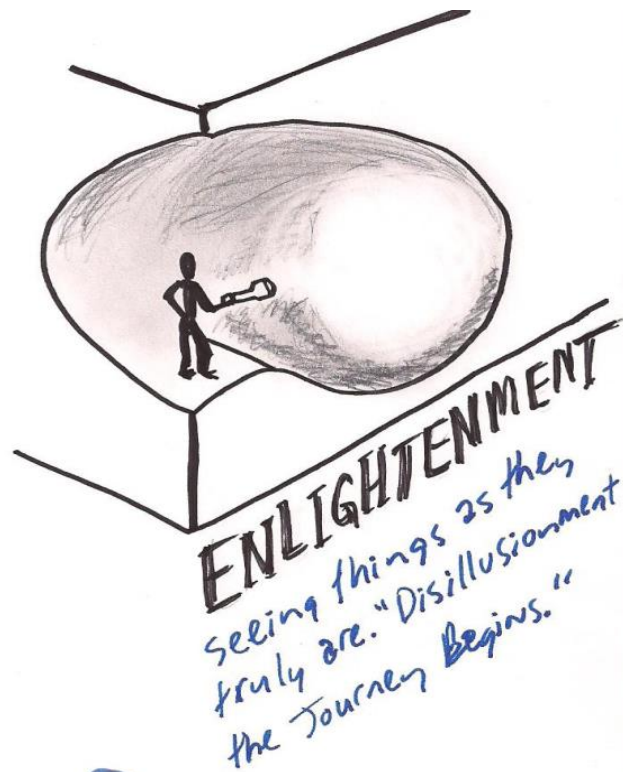 ENLIGHTENMENT
seeing things as they
truly are. "Disillusionment
the Journey Begins."